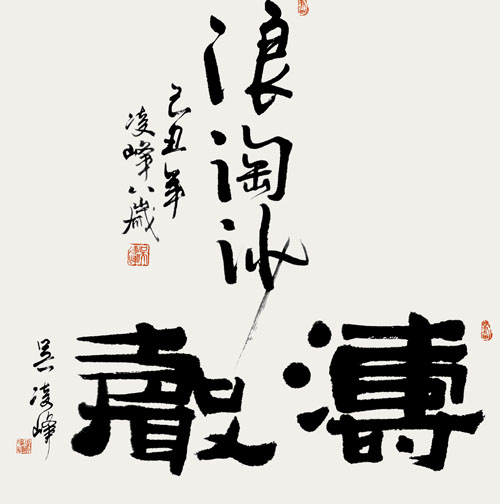 浪淘沙
己丑年
凌峰八歲
濤聲
吴凌峰